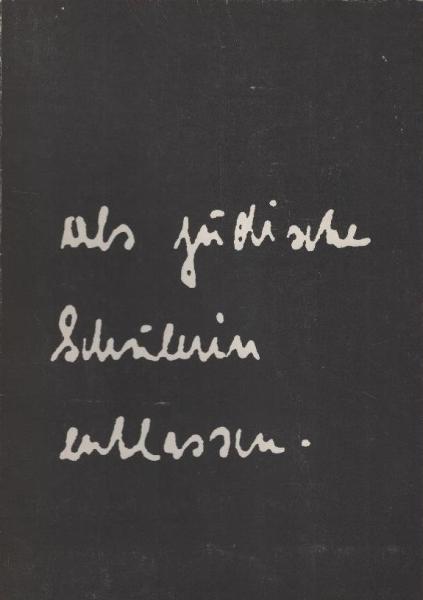 als jüdische
Schülerin
entlassen.